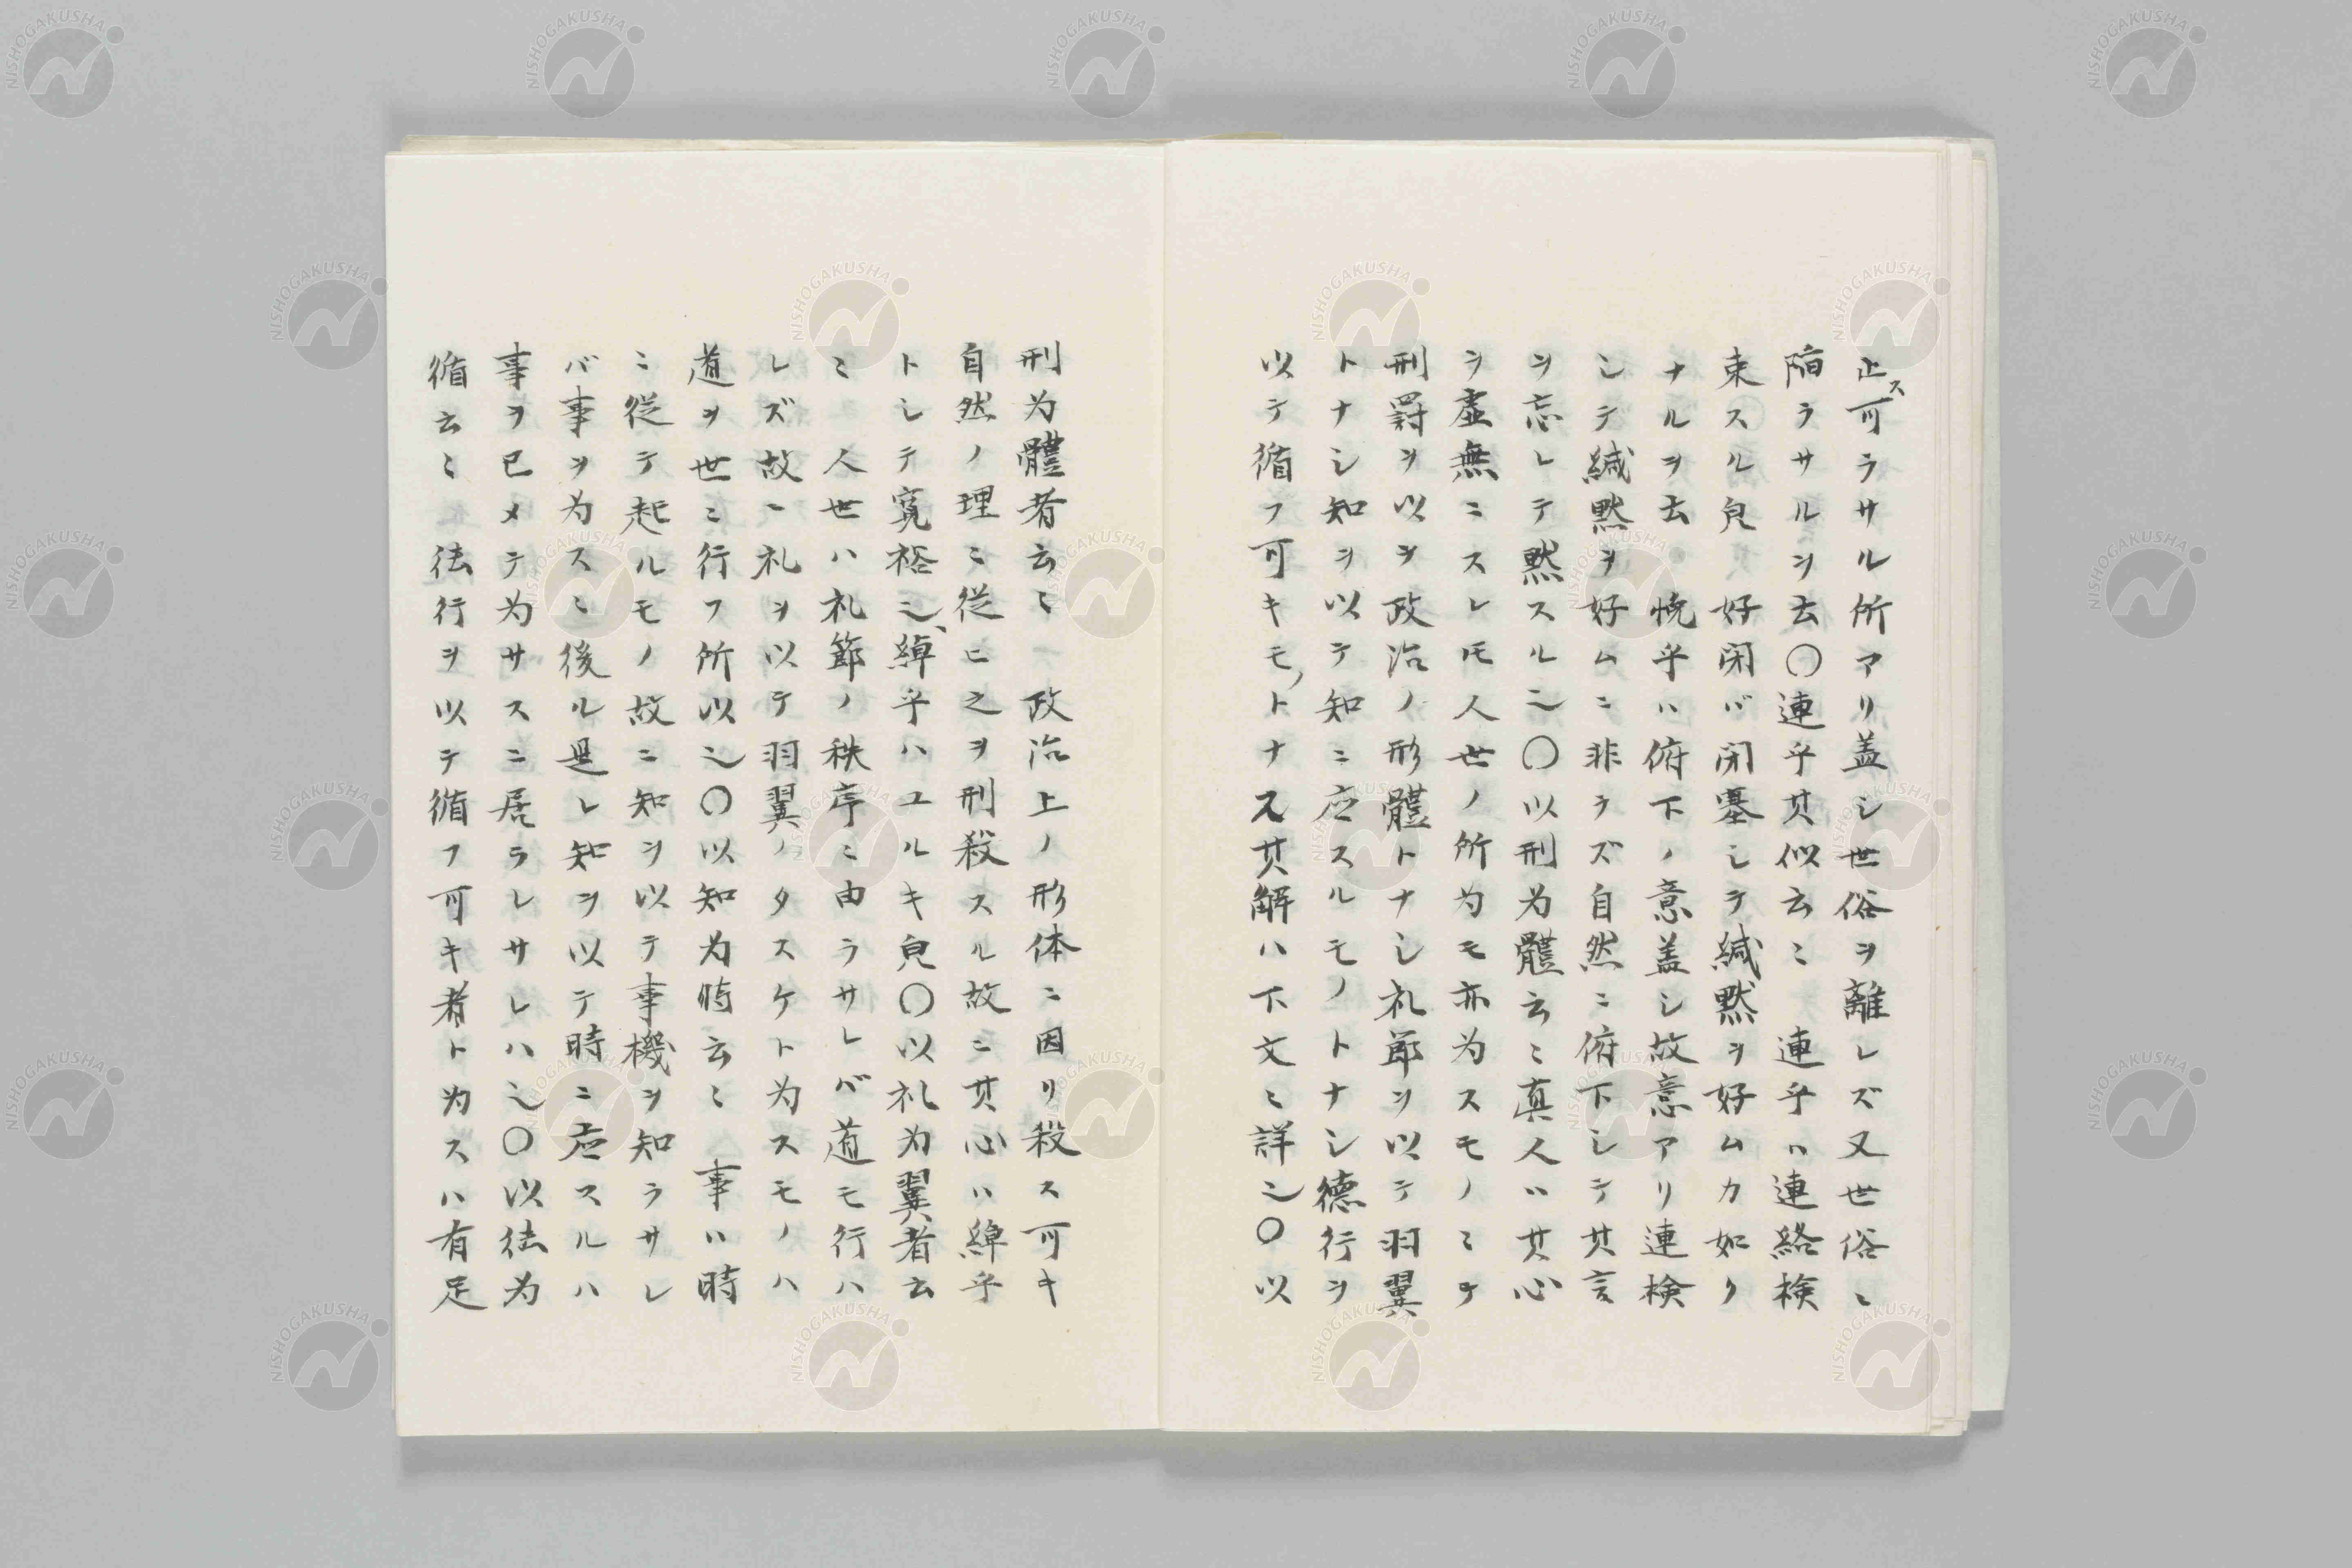 止ス可ラサル所アリ盖シ世俗ヲ離レズ又世俗ニ
陥ラサルヲ云〇連乎其似云〻 連乎ハ連絡検
束スル皃 好閉ハ゛閉塞シテ緘黙ヲ好ムカ如ク
ナルヲ云 悗乎ハ俯下ノ意盖シ故意アリ連検
シテ緘黙ヲ好ムニ非ラズ自然ニ俯下シテ其言
ヲ忘レテ黙スル也〇以刑为體云〻真人ハ其心
ヲ虚無ニスレモ人世ノ所为モ亦为スモノニテ
刑罸ヲ以ヲ政治ノ形體トナシ礼節ヲ以テ羽翼
トナシ知ヲ以テ知ニ应スルモノトナシ德行ヲ
以テ循フ可キモノトナス其解ハ下文ニ詳也〇以
刑为體者云〻 政治上ノ形体ニ因リ殺ス可キ
自然ノ理ニ従ヒ之ヲ刑殺スル故ニ其心ハ綽乎
トシテ寛裕也、綽乎ハユルキ皃〇以礼为翼者云
〻 人世ハ礼節ノ秩序ニ由ラサレバ道モ行ハ
レズ故ニ礼ヲ以テ羽翼ノタスケト为スモノハ
道ヲ世ニ行フ所以也〇以知为時云〻 事ハ時
ニ従テ起ルモノ故ニ知ヲ以テ事機ヲ知ラサレ
バ事ヲ为スニ後ル是レ知ヲ以テ時ニ应スルハ
事ヲ已メテ为サスニ居ラレサレハ也〇以徳为
循云〻 徳行ヲ以テ循フ可キ者ト为スハ有足
NISHOGAKUSHA